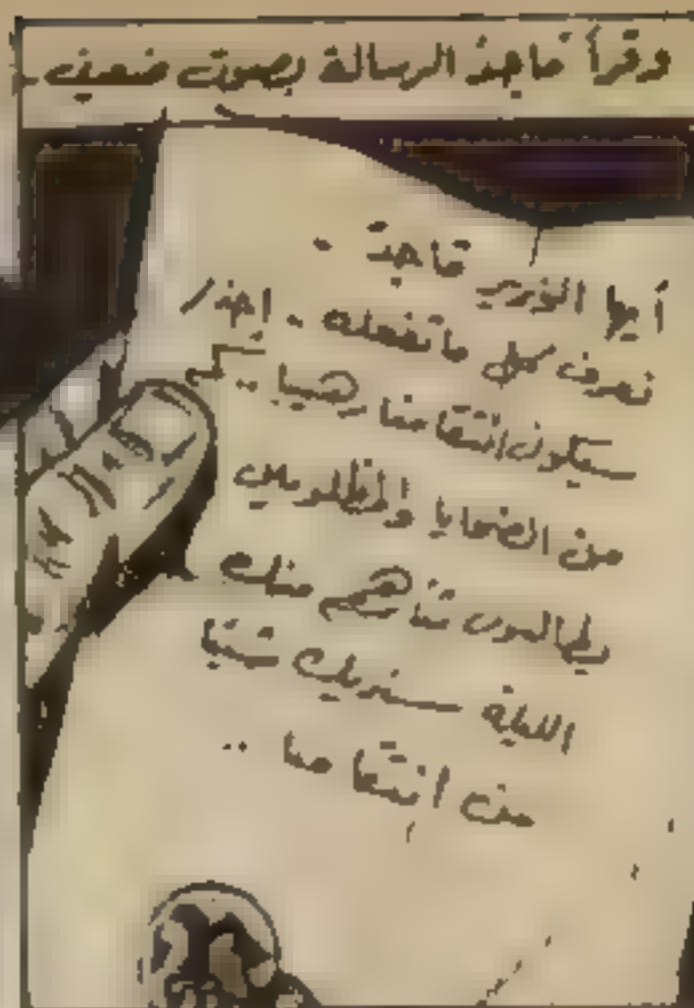 وقرأ ماجد الرسالة بصوت ضعيف
أيها الوزير ماجد .
نعرف كل ما تفعله . احذر
سيكون انتقامنا رهيبا ..
من الضحايا والمظلومين
يطالبون منك
الليلة سنريك شيئا
من انتقامنا ..